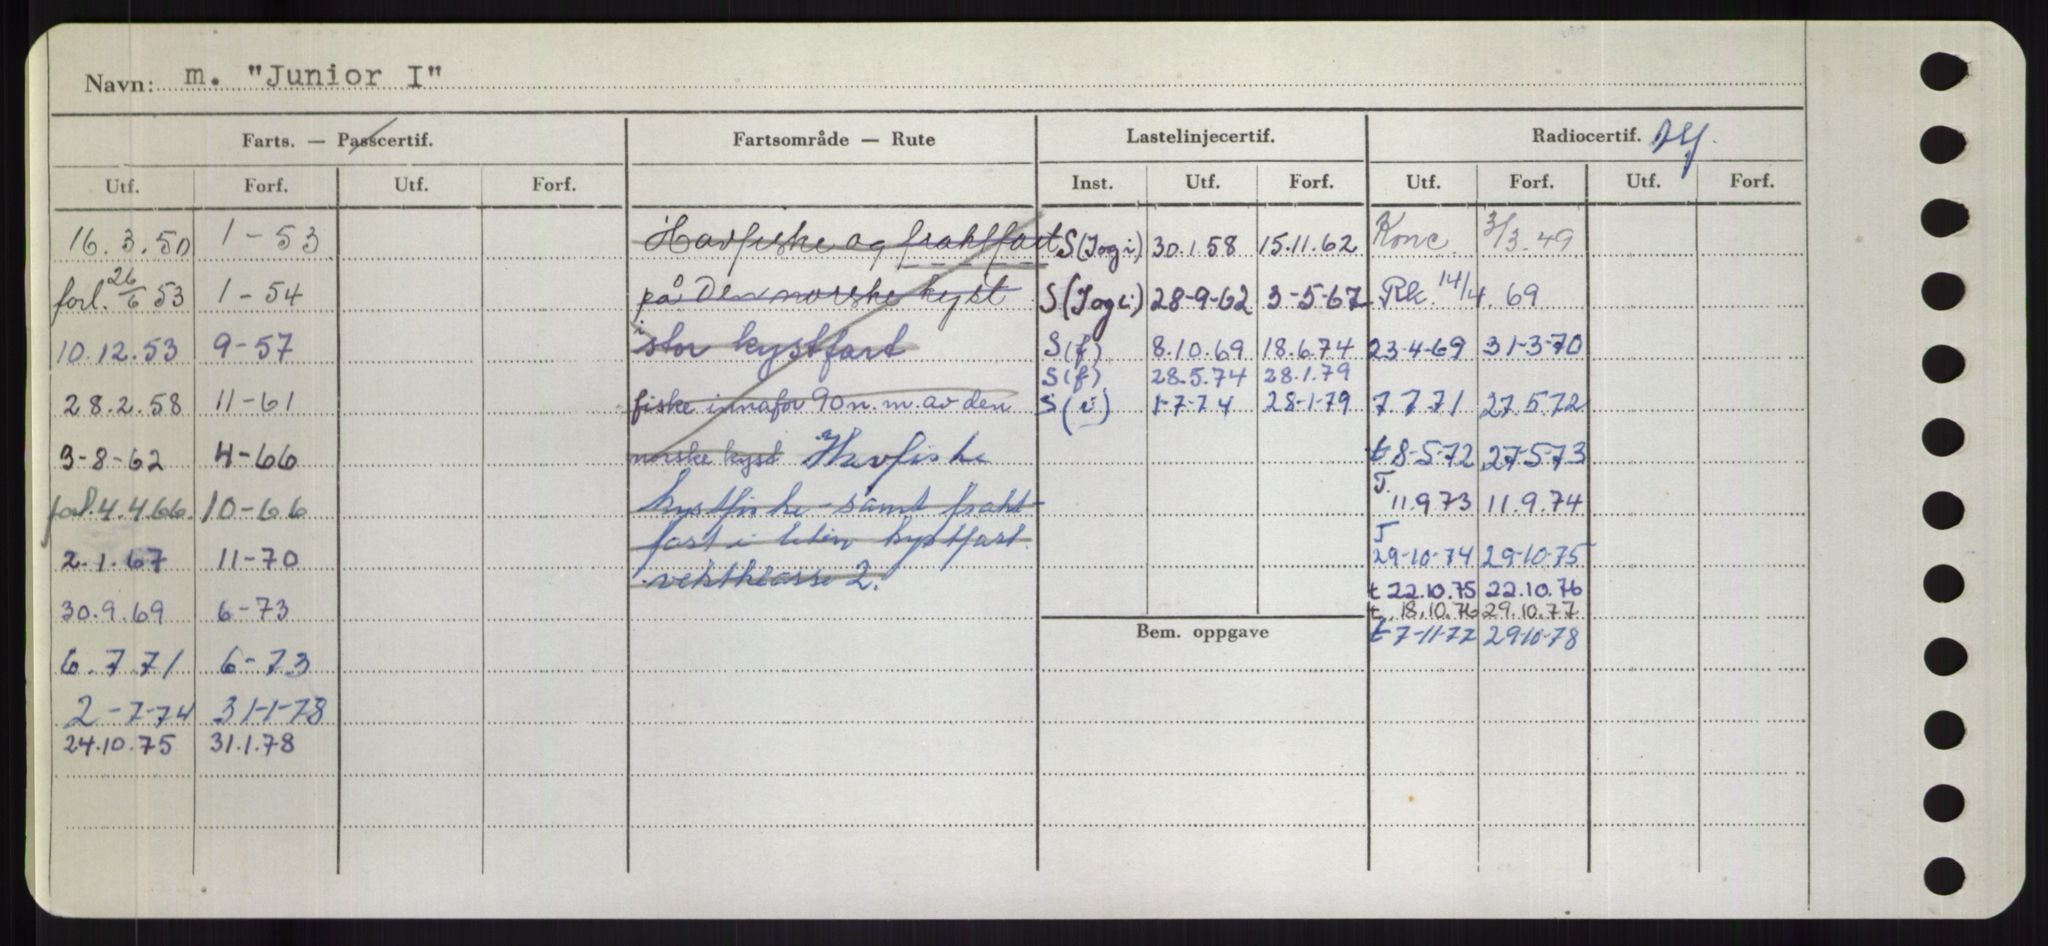 Navn: m. "Junior I"
Farts. — Passcertif. Fartsområde — Rute Lastelinjecertif. Radiocertif.
Utf. Forf. Utf. Forf. Inst. Utf. Forf. Utf. Forf. Utf. Forf.
16.3.50 1-53 Havfiske og fraktfart S(Jogi) 30.1.58 15.11.62 Konc. 3/3.49
forl. 26/6 53 1-54 på den norske kyst S(Jogi) 28-9-62 3-5-67 Rk. 14/4. 69
10.12.53 9-57 i stor kystfart S(f) 8.10.69 18.6.74 23-4-69 31-3-70
S(f) 28.5.74 28.1.79
28.2.58 11-61 fiske innafor 90 n.m. av den S(i) 1-7-74 28-1-79 7.7.71 27.5.72
3-8-62 4-66 norske kyst Havfiske t 8-5-72 27-5-73
forl. 4.4.66 10-66 kystfiske samt frakt- T. 11.9.73 11.9.74
fart i liten kystfart. T
2.1.67 11-70 29-10-74 29-10-75
vektklasse 2. t 22.10.75 22.10.76
30.9.69 6-73 t. 18.10.76 29.10.77
Bem. oppgave t 7-11-77 29-10-78
6.7.71 6-73
2-7-74 31-1-78
24.10.75 31.1.78